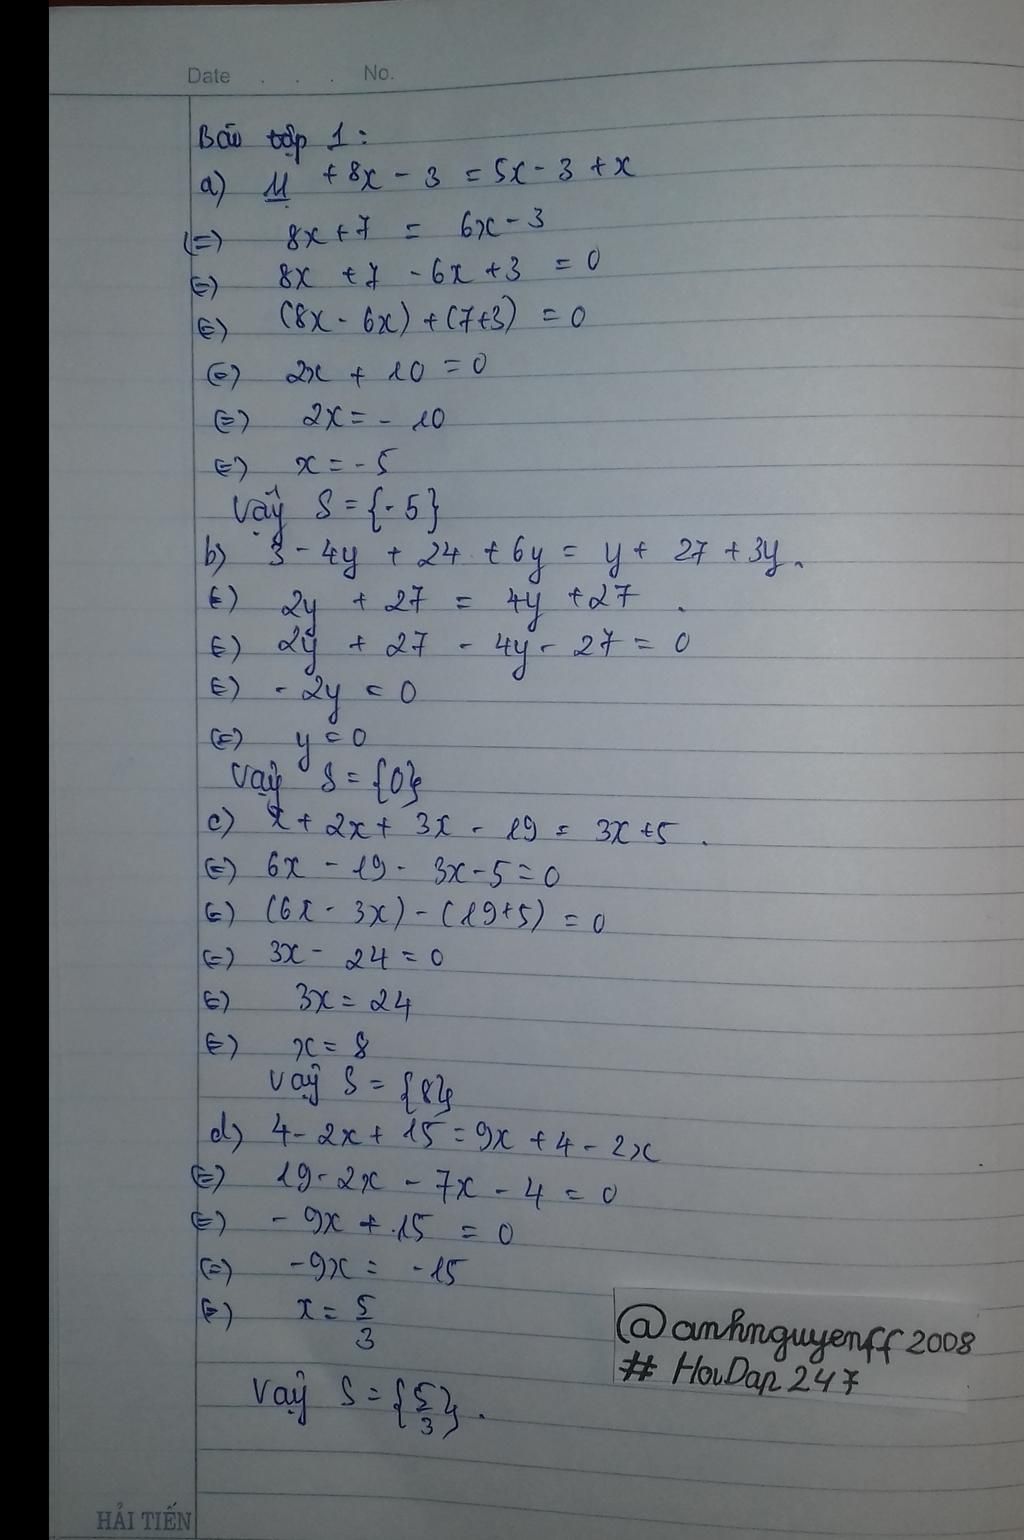 Date . . . No.
Bài tập 1:
a) 11 + 8x - 3 = 5x - 3 + x
(=) 8x + 7 = 6x - 3
(=) 8x + 7 - 6x + 3 = 0
(=) (8x - 6x) + (7+3) = 0
(=) 2x + 10 = 0
(=) 2x = - 10
(=) x = - 5
Vậy S = {-5}
b) 3 - 4y + 24 + 6y = y + 27 + 3y.
(=) 2y + 27 = 4y + 27 .
(=) 2y + 27 - 4y - 27 = 0
(=) - 2y = 0
(=) y = 0
Vậy S = {0}
c) x + 2x + 3x - 19 = 3x + 5 .
(=) 6x - 19 - 3x - 5 = 0
(=) (6x - 3x) - (19+5) = 0
(=) 3x - 24 = 0
(=) 3x = 24
(=) x = 8
Vậy S = {8}
d) 4 - 2x + 15 = 9x + 4 - 2x
(=) 19 - 2x - 7x - 4 = 0
(=) - 9x + 15 = 0
(=) -9x = -15
(=) x = 5/3
Vậy S = {5/3}.
@anhnguyenff2008
# HoiDap247
HẢI TIẾN